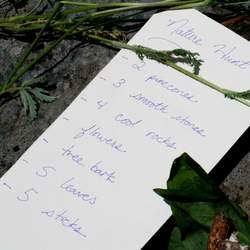 Nature Hunt
- 2 pinecones
- 3 smooth stones
- 4 cool rocks
- flowers
- tree bark
- 5 leaves
- 5 sticks